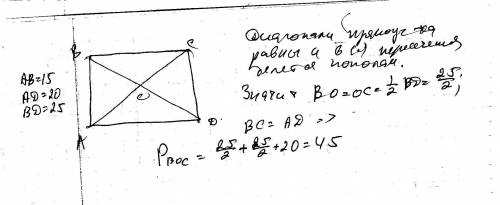 B
C
AB=15
AD=20
BD=25
O
A
D
Диагонали прямоуг-ка
равны и в (·) пересечения
делятся пополам.
Значит BO=OC=1/2 BD=25/2,
BC=AD =>
P BOC = 25/2+25/2+20=45